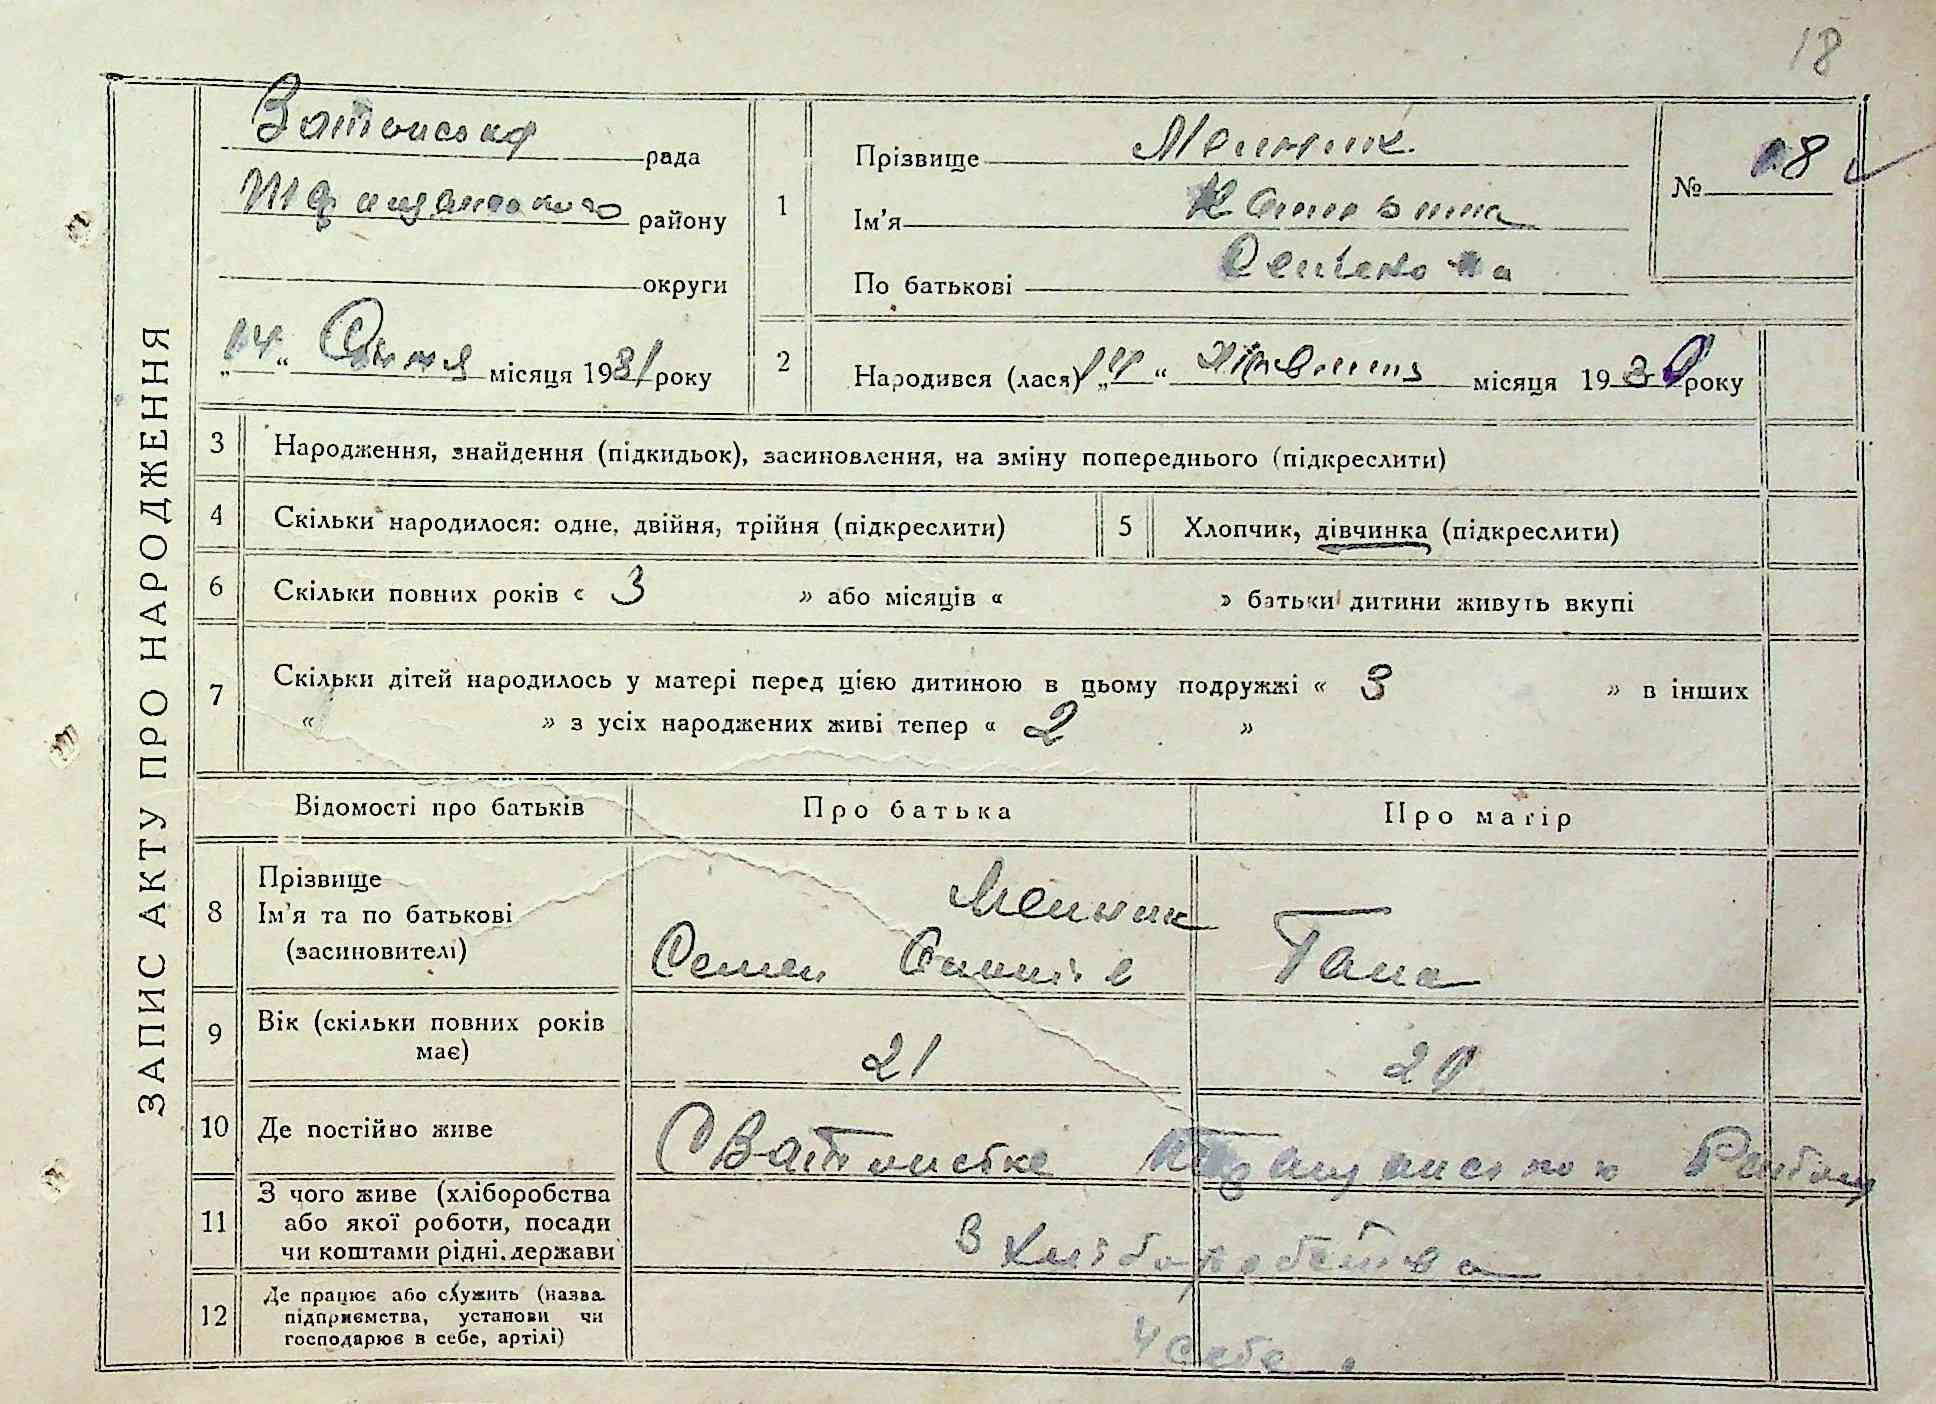 18
ЗАПИС АКТУ ПРО НАРОДЖЕННЯ
рада
району
округи
„14“ Січня місяця 1931 року
1
Прізвище Мельник
Ім'я
По батькові
№ 18
2
Народився (лася) „14“ місяця 193 року
3 Народження, знайдення (підкидьок), засиновлення, на зміну попереднього (підкреслити)
4 Скільки народилося: одне, двійня, трійня (підкреслити)
5 Хлопчик, дівчинка (підкреслити)
6 Скільки повних років « 3 » або місяців « » батьки дитини живуть вкупі
7 Скільки дітей народилось у матері перед цією дитиною в цьому подружжі « 3 » в інших
« » з усіх народжених живі тепер « 2 »
Відомості про батьків
Про батька
Про матір
8
Прізвище
Ім'я та по батькові
(засиновителі)
Мельник
Семен
Гана
9
Вік (скільки повних років
має)
21
20
10 Де постійно живе
11
З чого живе (хліборобства
або якої роботи, посади
чи коштами рідні. держави
З хліборобства
12
Де працює або служить (назва
підприємства, установи чи
господарює в себе, артілі)
У себе.